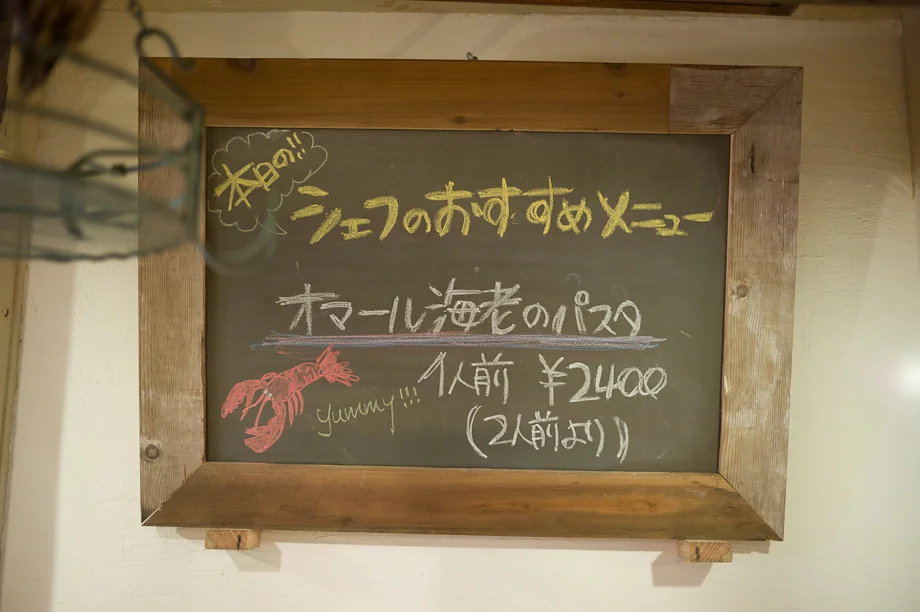 本日の!!
シェフのおすすめメニュー
オマール海老のパスタ
1人前 ¥2400
yummy!!!
(2人前より)